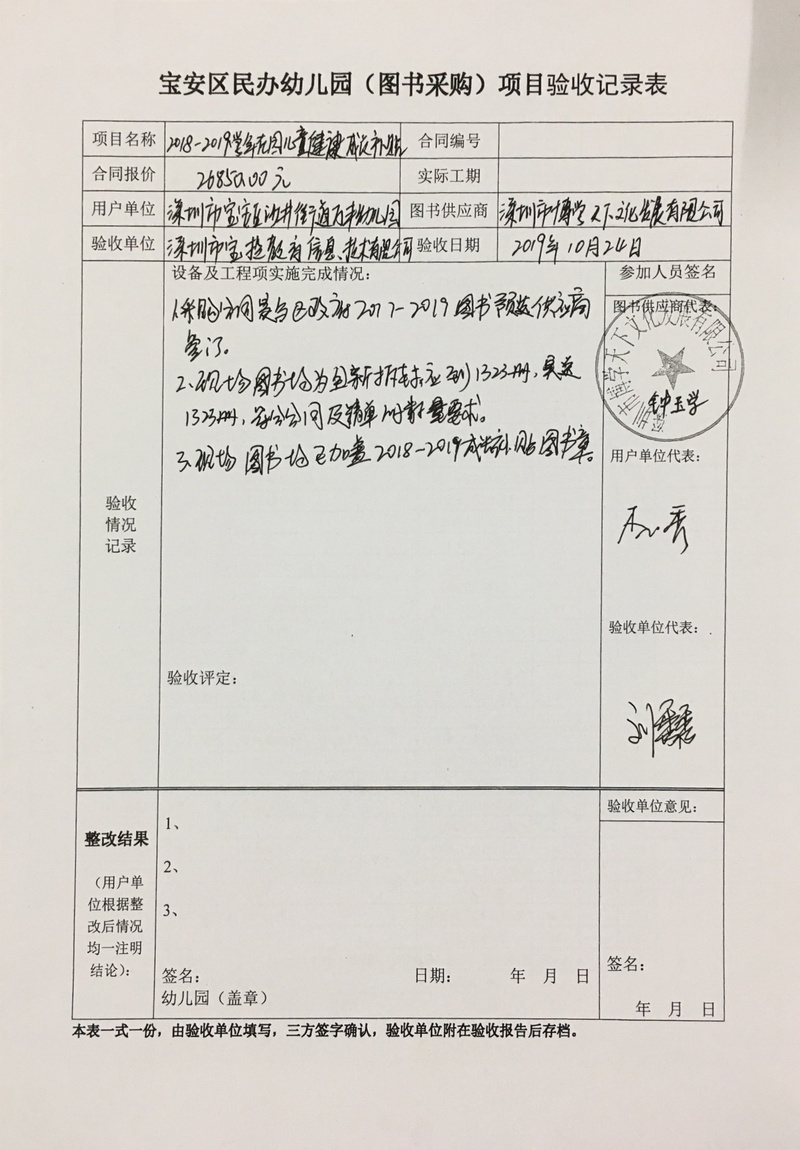 宝安区民办幼儿园（图书采购）项目验收记录表
项目名称 2018-2019学年在园儿童健康成长补贴 合同编号
合同报价 26850.00元 实际工期
用户单位 深圳市宝安区沙井街道万丰幼儿园 图书供应商 深圳市博学天下文化发展有限公司
验收单位 深圳市宝 教育信息技术有限公司 验收日期 2019年10月24日
设备及工程项实施完成情况： 参加人员签名
图书供应商代表：
1.采购合同是与区政府2017-2019图书预选供应商
签订。
2.现场图书均为全新 应到1323册，实送
1323册，符合合同及清单的数量要求。
3.现场图书均已加盖2018-2019成长补贴图书章。
深圳市博学天下文化发展有限公司
钟玉学
用户单位代表：
验收
情况
记录
验收单位代表：
验收评定：
刘
整改结果
（用户单
位根据整
改后情况
均一注明
结论）：
1、
2、
3、
签名： 日期： 年 月 日
幼儿园（盖章）
验收单位意见：
签名：
年 月 日
本表一式一份，由验收单位填写，三方签字确认，验收单位附在验收报告后存档。